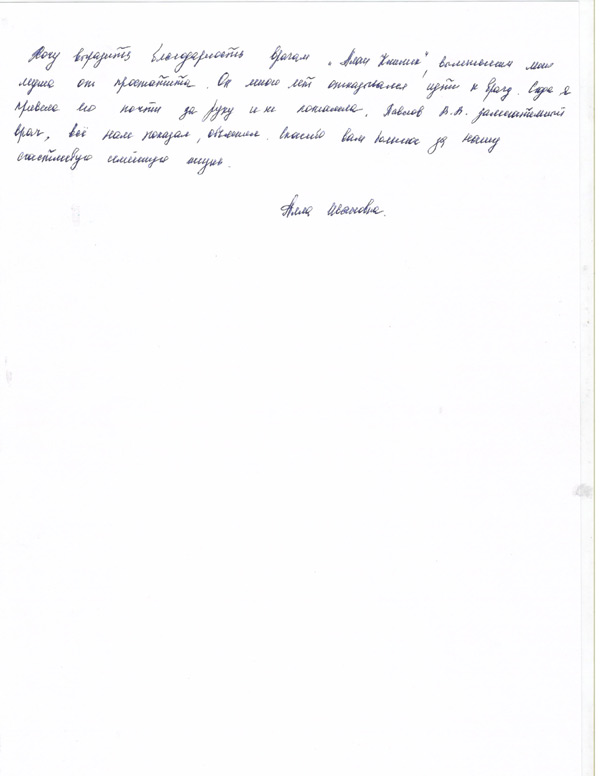 Хочу выразить благодарность врачам „Алан Клиник“, вылечившим моего
мужа от простатита. Он много лет отказывался идти к врачу. Сюда я
привела его почти за руку и не пожалела. Павлов В.В. замечательный
врач, всё нам показал, объяснил. Спасибо вам большое за нашу
счастливую семейную жизнь.
Алла Ивановна.